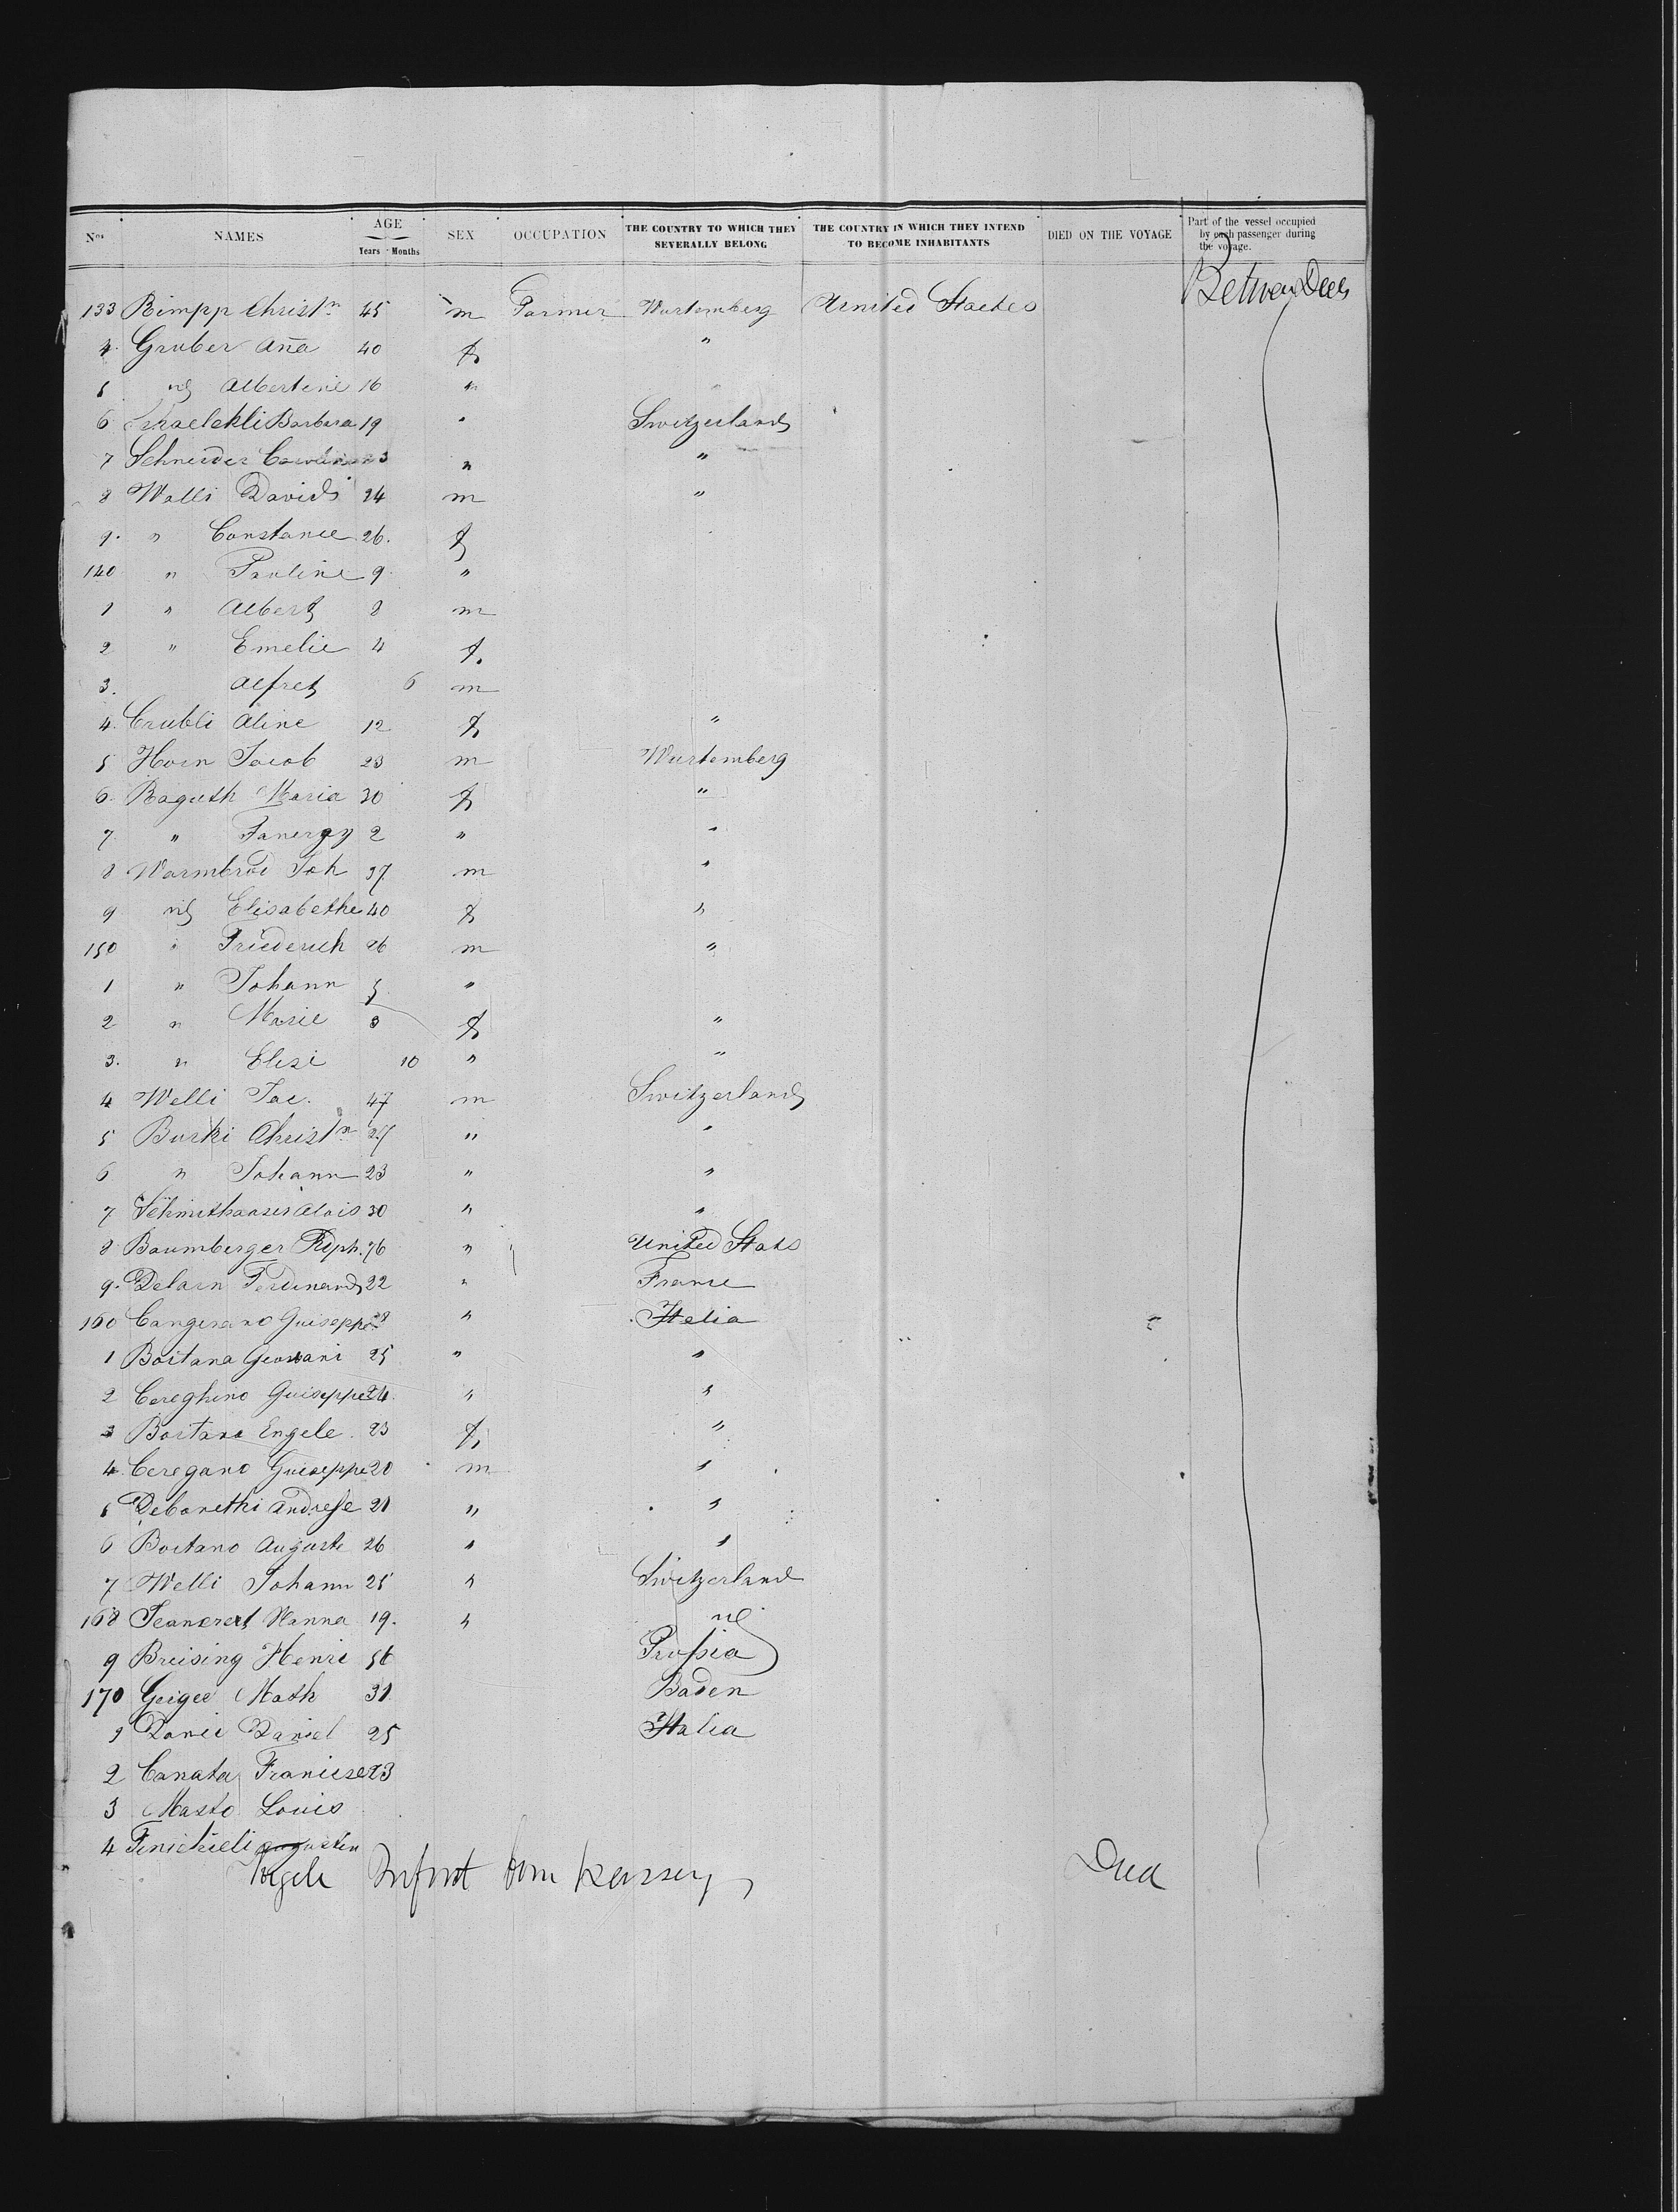 Nos NAMES AGE Years Months SEX OCCUPATION THE COUNTRY TO WHICH THEY SEVERALLY BELONG THE COUNTRY IN WHICH THEY INTEND TO BECOME INHABITANTS DIED ON THE VOYAGE Part of the vessel occupied by each passenger during the voyage.
133 Rimpp Christn 45 m Farmer Wurtemberg United Staetes Betwen Decs
4 Gruber Aña 40 f "
5 Albertine 16 "
6 Barbara 19 " Switzerland
7 Schneider 23 " "
8 Walli David 24 m "
9 " Constance 26. f
140 " Pauline 9 "
1 " Albert 8 m
2 " Emelie 4 f.
3. Alfred 6 m
4. Crubli Aline 12 f "
5 Horn Jacob 23 m Wurtemberg
6 Raguth Maria 30 f "
7 " 2 " "
8 Warmbrod Joh 37 m "
9 Elisabethe 40 f "
150 " Friederich 26 m "
1 " Johann 5 "
2 " Marie 3 f "
3. " Elisi 10 " "
4 Welli Jac. 47 m Switzerland
5 Burki Christn 27 " "
6 " Johann 23 " "
7 Alois 30 " "
8 Baumberger 76 " United Stats
9. Delarn Ferdinand 22 " France
160 Cangerano Guiseppe 28 " Itelia
1 Boitana Geovani 25 " "
2 Cereghino Guiseppe 24. " "
3 Boitano Engele. 23 f "
4 Ceregano Guiseppe 20 m "
5 Andresse 21 " "
6 Boitano Auguste 26 " "
7 Welli Johann 25 " Switzerland
168 Hanna 19. "
9 Breising Henri 56 Prussia
170 Geiger Math 31 Baden
1 Daniel 25 Italia
2 Canata 23
3 Masto Louis
4
Infant Died